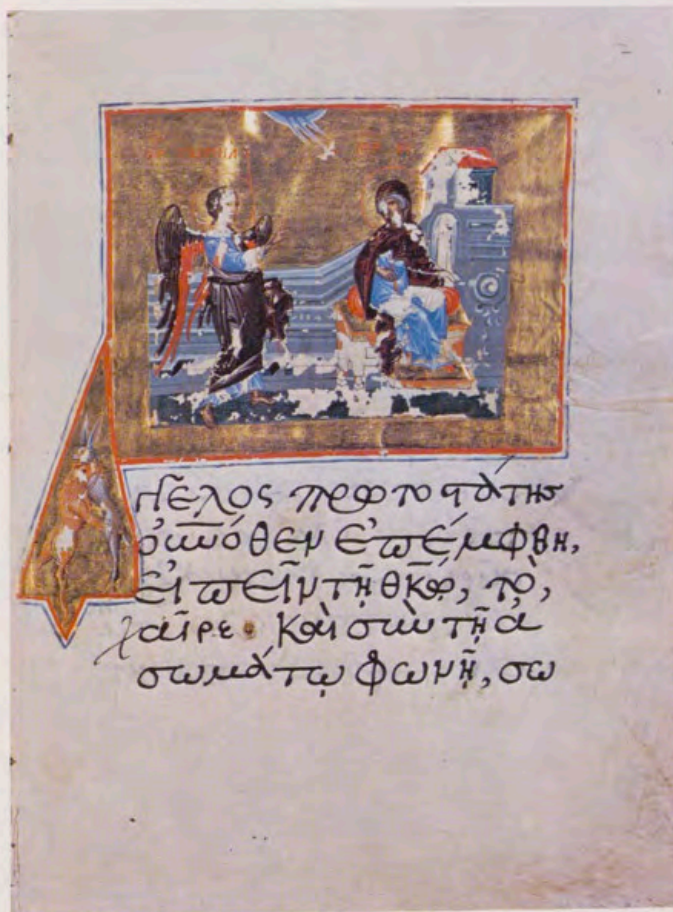 Ἄγγελος πρωτοστάτης
οὐν̅όθεν ἐπέμφθη,
εἰπεῖν τῇ θκ̅ῳ, τὸ,
χαῖρε· καὶ σὺν τῇ ἀ
σωμάτῳ φωνῇ, σω